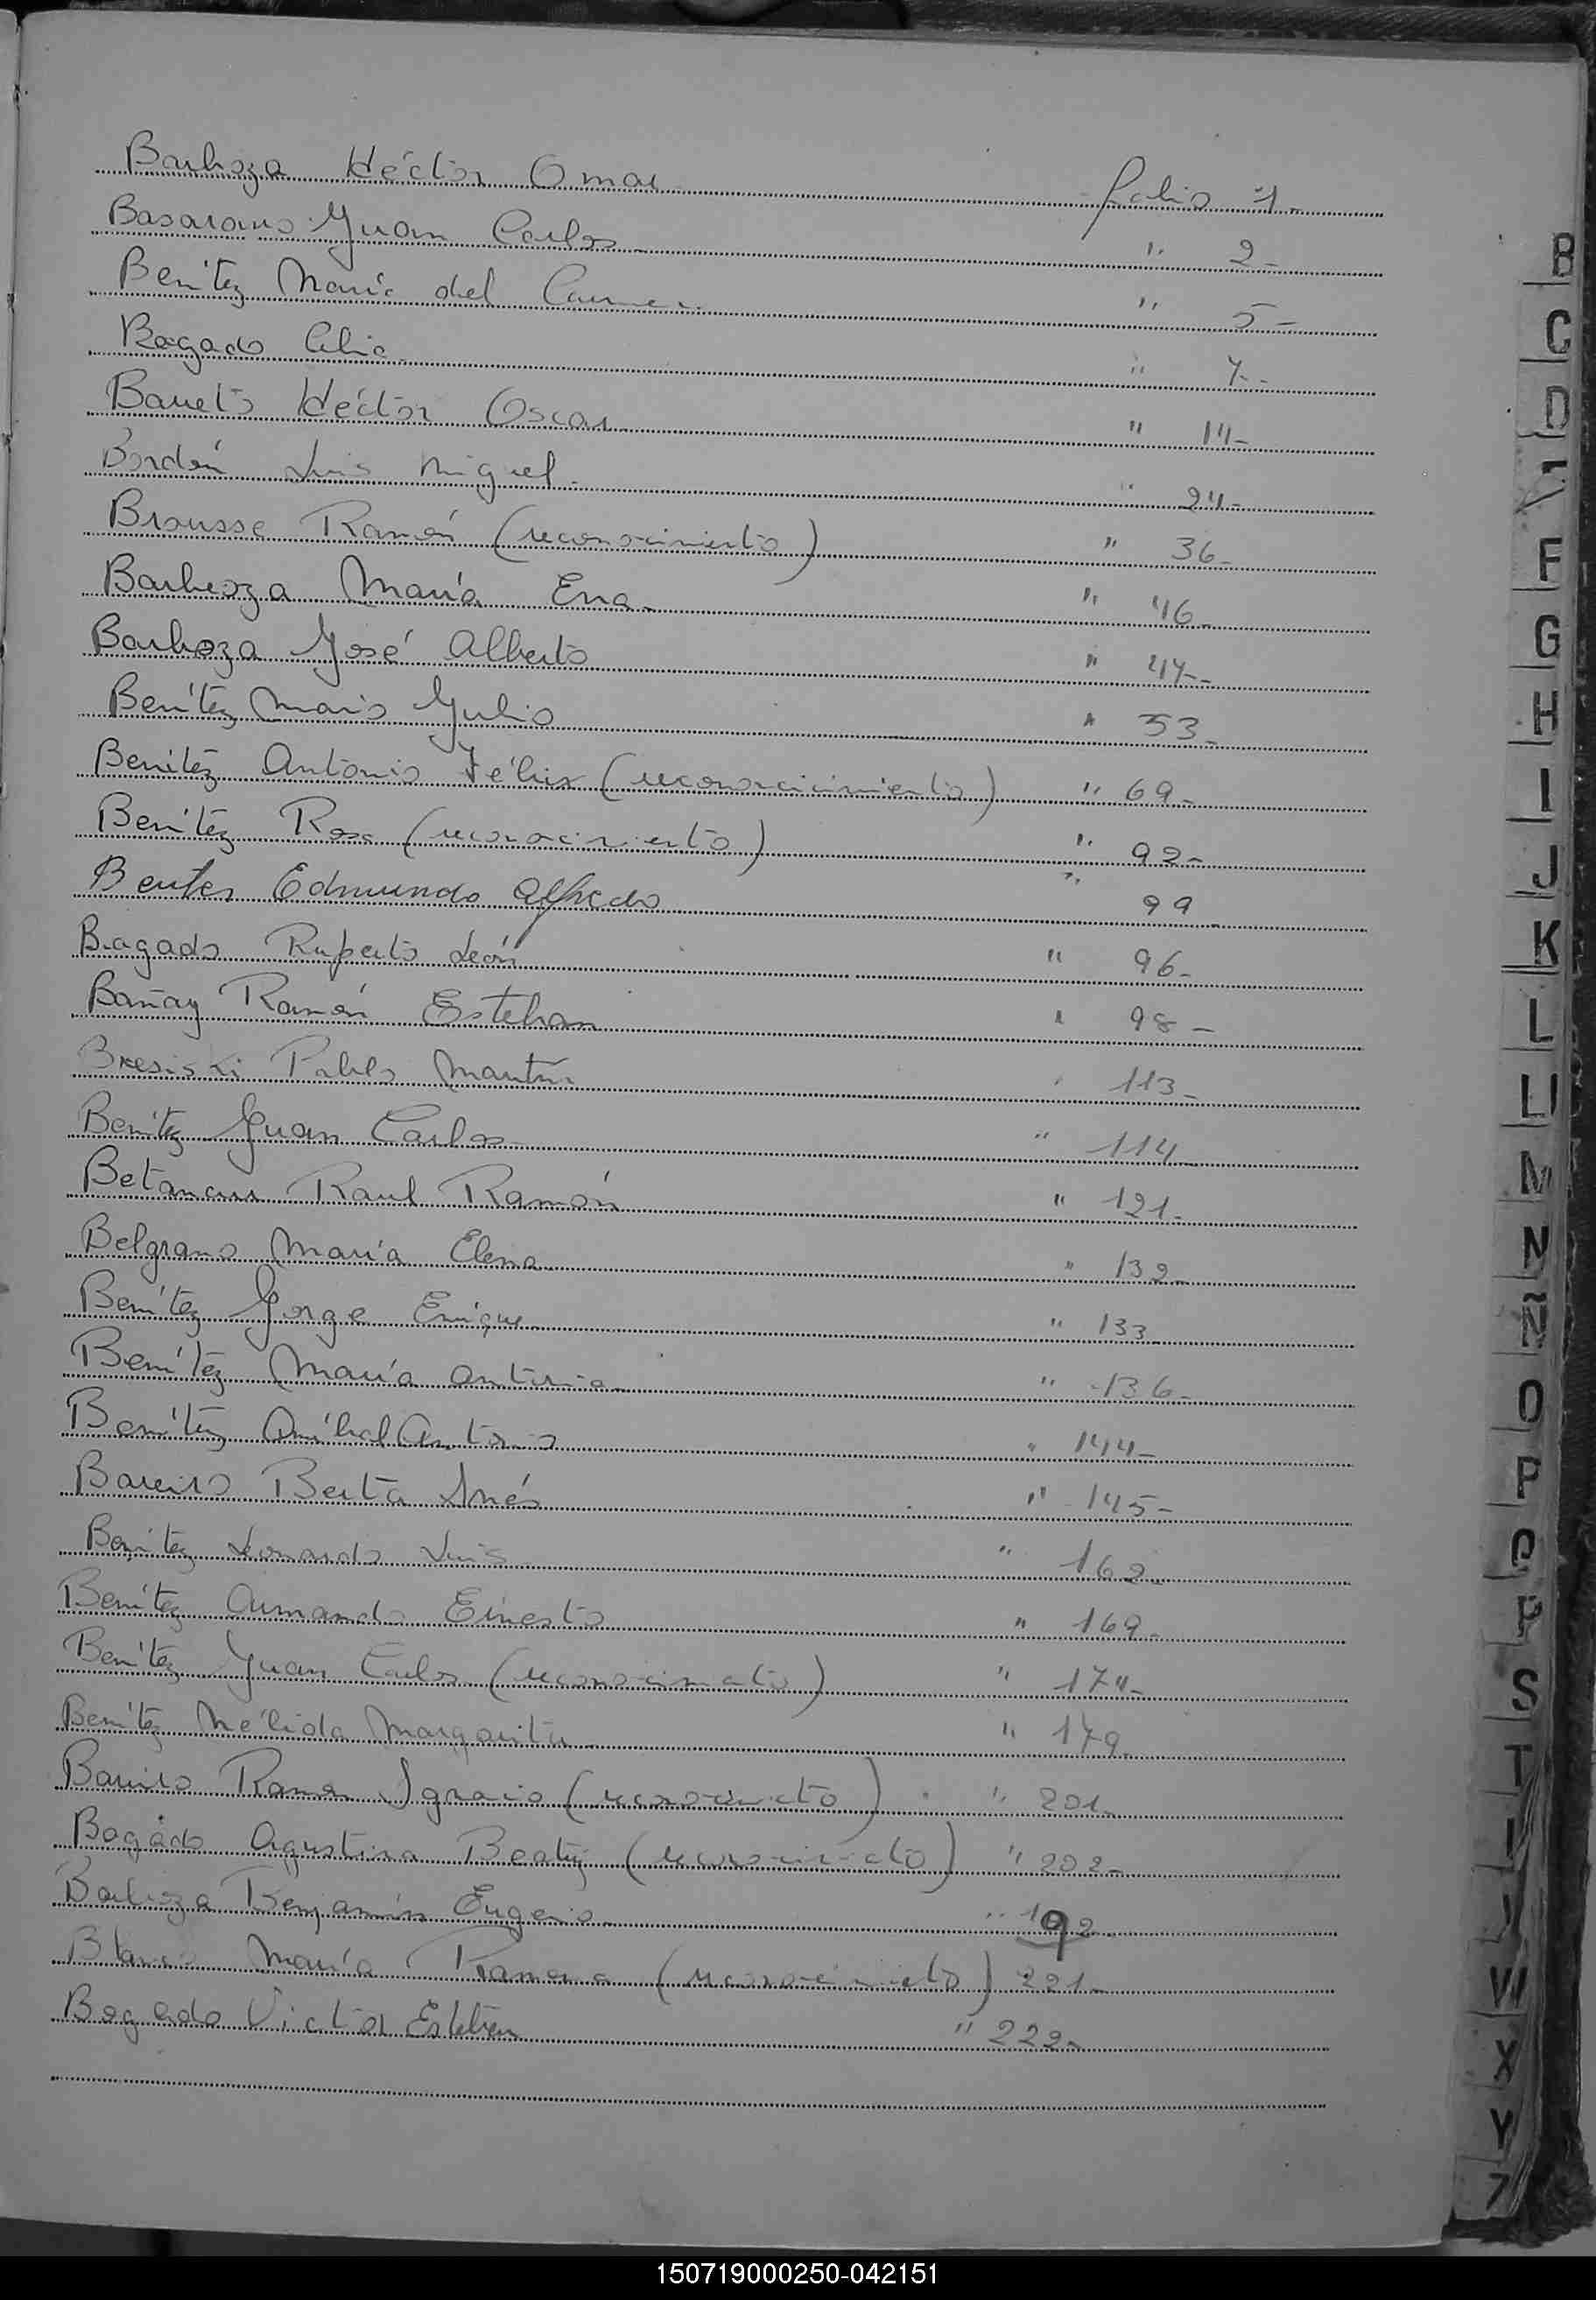 Barboza Héctor Omar folio 1-
Basarano Juan Carlos - " 2-
Benítez María del Carmen " 5-
Bogado Celia " 7-
Barreto Héctor Oscar " 14-
Bordón Luis Miguel - " 24-
Brousse Ramón (reconocimiento) " 36-
Barboza María Ena - " 46-
Barboza José Alberto " 47-
Benítez Mario Julio " 53-
Benítez Antonio Félix (reconocimiento) " 69-
Benítez Rosa (reconocimiento) " 92-
Edmundo Alfredo " 99
Bogado Ruperto León " 96-
Bañay Ramón Esteban " 98-
Pablo Martín " 113-
Benítez Juan Carlos " 114-
Betancur Raul Ramón " 121-
Belgrano María Elena " 132-
Benítez Jorge Enrique " 133
Benítez María Antonia " 136-
Benítez Aníbal Antonio " 144-
Bareiro Berta Inés " 145-
Benítez Leonardo Luis " 162-
Benítez Armando Ernesto " 169-
Benítez Juan Carlos (reconocimiento) " 174-
Benítez Nélida Margarita " 179-
Bareiro Ramón Ignacio (reconocimiento) " 201-
Bogado Agustina Beatriz (reconocimiento) " 202-
Barboza Benjamín Eugenio " 192-
Blanco María Ramona (reconocimiento) 221-
Bogado Victor Esteban " 222-
B
C
D
F
G
H
I
J
K
L
Ll
M
N
Ñ
O
P
Q
S
T
W
X
Y
150719000250-042151